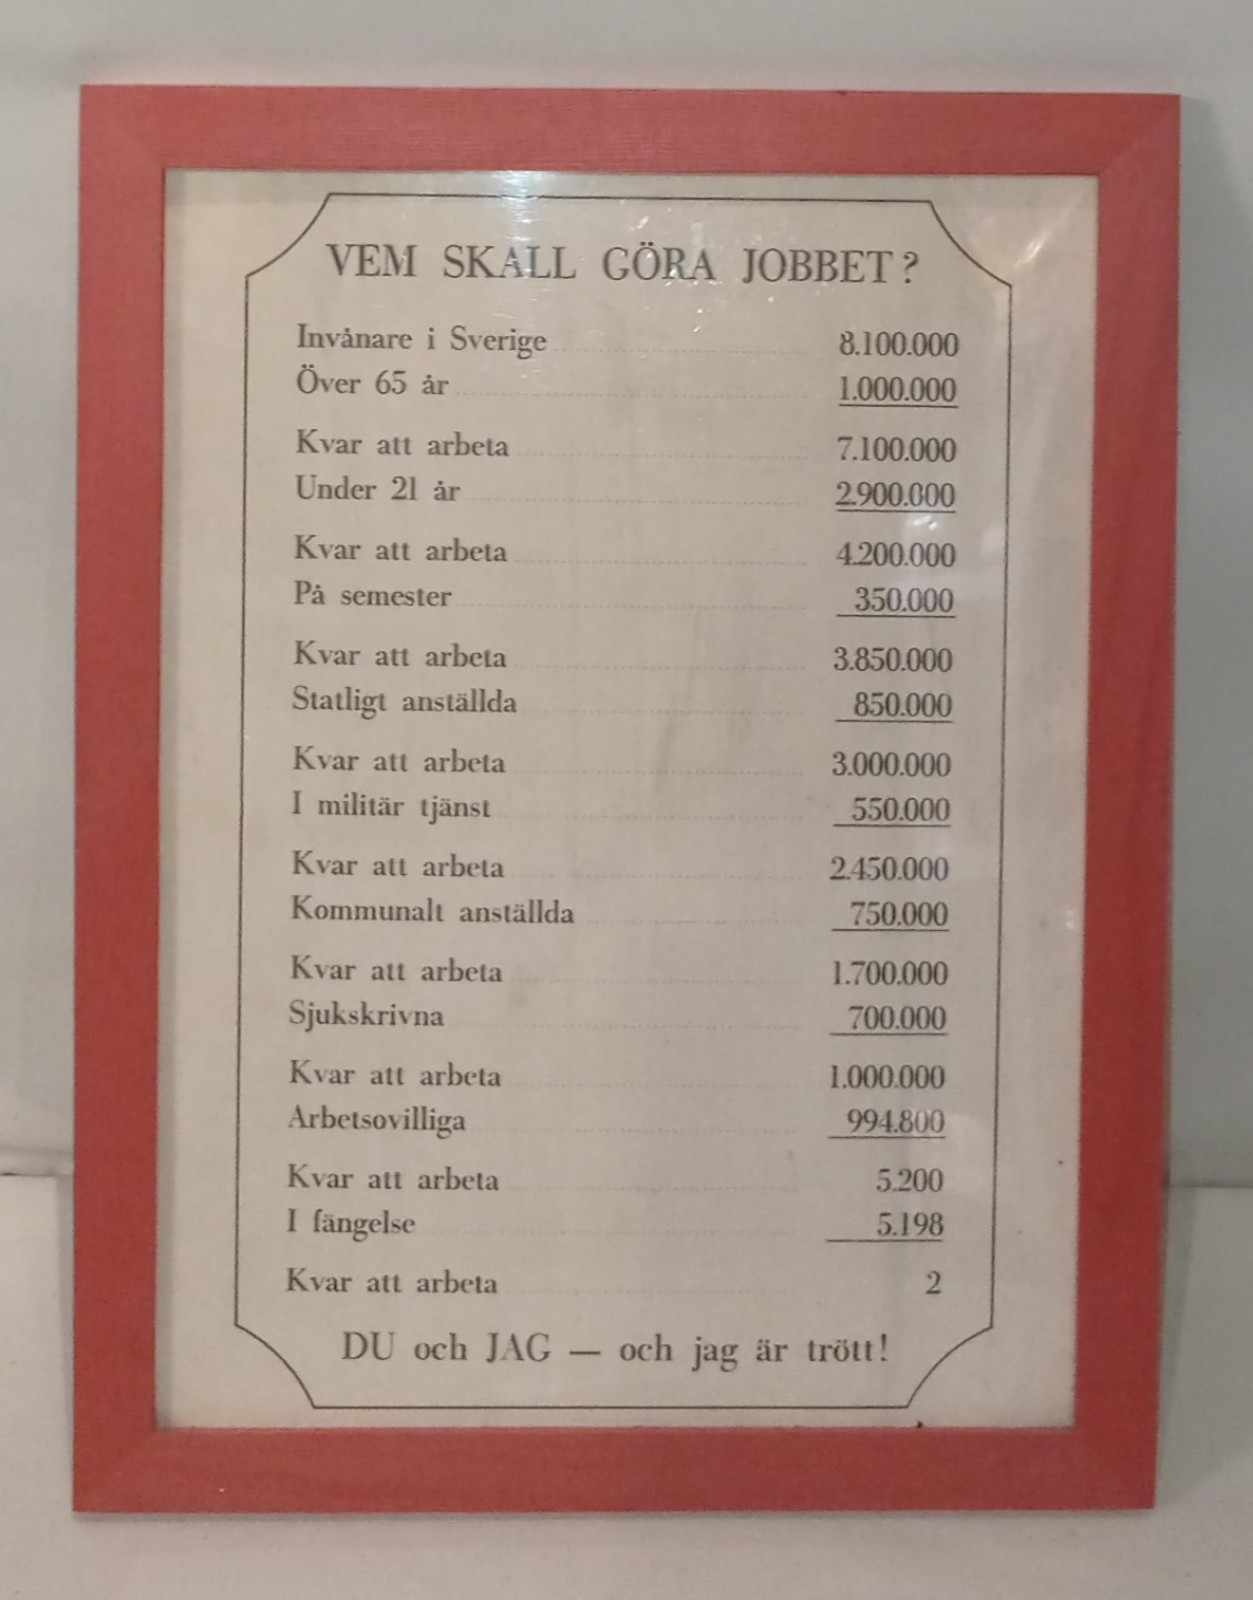 VEM SKALL GÖRA JOBBET?
Invånare i Sverige 8.100.000
Över 65 år 1.000.000
Kvar att arbeta 7.100.000
Under 21 år 2.900.000
Kvar att arbeta 4.200.000
På semester 350.000
Kvar att arbeta 3.850.000
Statligt anställda 850.000
Kvar att arbeta 3.000.000
I militär tjänst 550.000
Kvar att arbeta 2.450.000
Kommunalt anställda 750.000
Kvar att arbeta 1.700.000
Sjukskrivna 700.000
Kvar att arbeta 1.000.000
Arbetsovilliga 994.800
Kvar att arbeta 5.200
I fängelse 5.198
Kvar att arbeta 2
DU och JAG — och jag är trött!